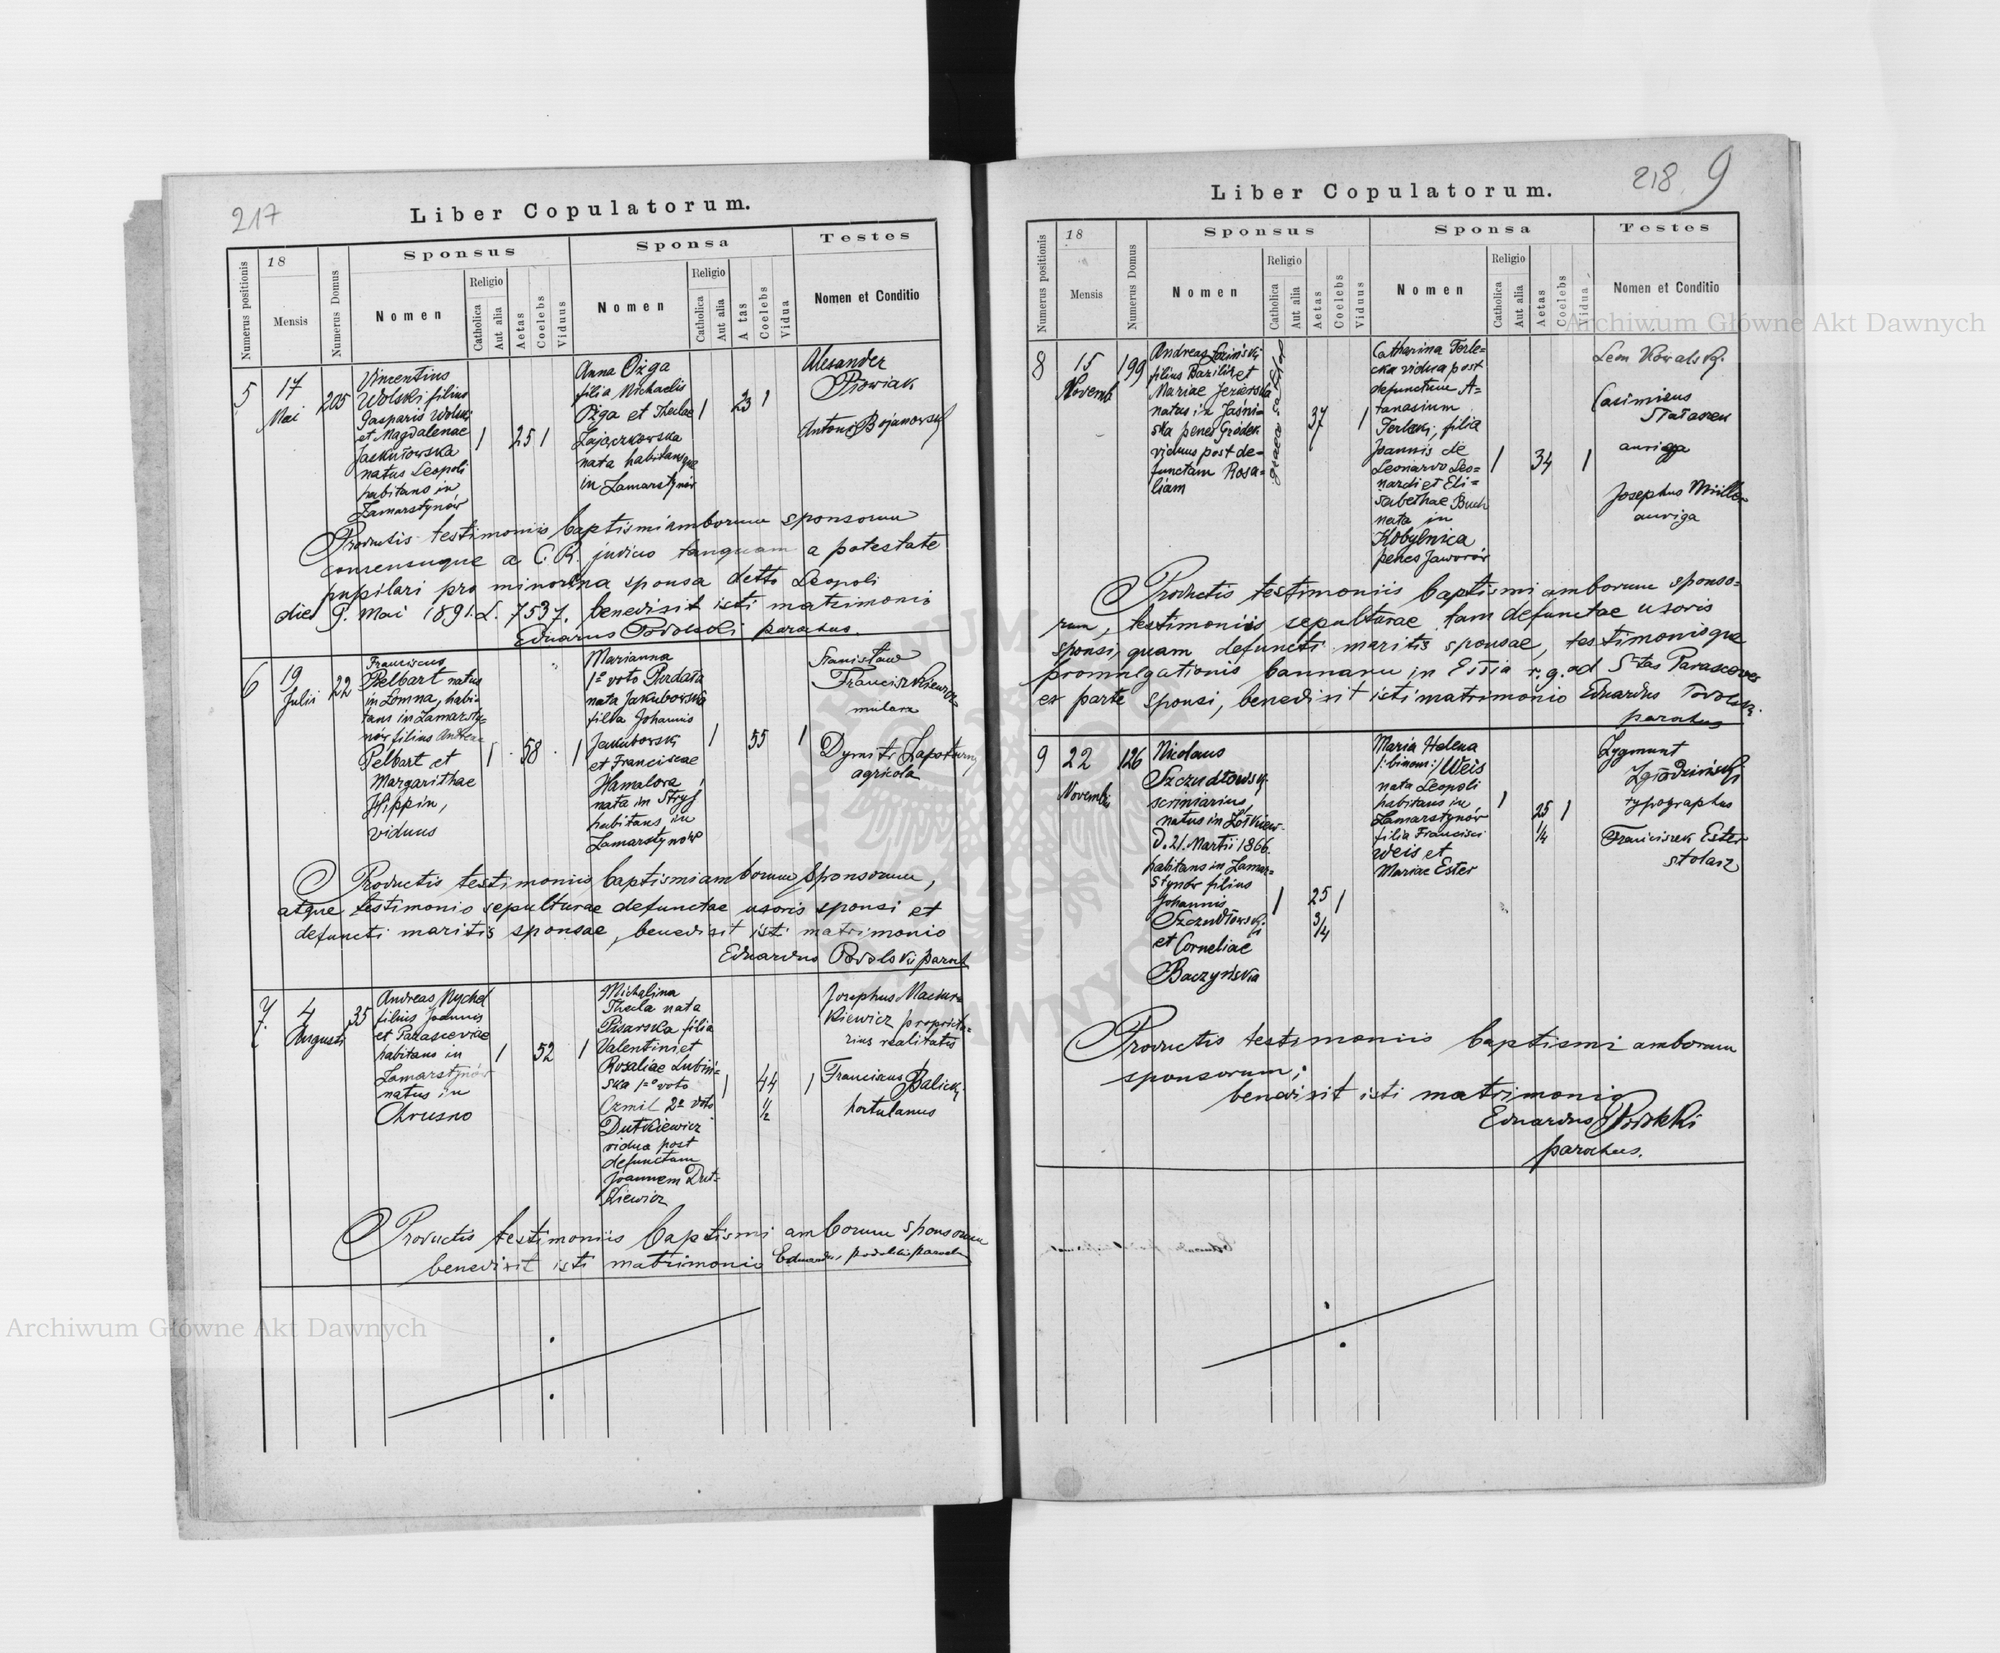 217
Liber Copulatorum.
Numerus positionis
18
Mensis
Numerus Domus
Sponsus
Nomen
Religio
Catholica
Aut alia
Aetas
Coelebs
Viduus
Sponsa
Nomen
Religio
Catholica
Aut alia
A tas
Coelebs
Vidua
Testes
Nomen et Conditio
5
17
Mai
205
Vincentius
Wolski filius
Gasparis Wolski
et Magdalenae
Jaskułowska
natus Leopoli
habitans in
Zamarstynów
1
25
1
Anna Ożga
filia Michaelis
Ożga et Theclae
Zajączkowska
nata habitansque
in Zamarstynów
1
23
1
Alexander
Piowiak
Antoni Bojanowski
Productis testimoniis baptismi amborum sponsorum
consensuque a C. R. judicio tanquam a potestate
pupilari pro minorenna sponsa detto Leopoli
die 9. Mai 1891. L. 7537. benedixit isti matrimonio
Eduardus Podolski parochus.
6
19
Julii
22
Franciscus
Pelbart natus
in Łomna, habi-
tans in Zamarsty-
nów filius Andreae
Pelbart et
Margarithae
Hippin,
viduus
1
58
1
Marianna
1º voto Prodata
nata Jakubowska
filia Johannis
Jakubowski
et Franciscae
Hamalora
nata in Stryj
habitans in
Zamarstynow
1
55
1
Stanisław
Franciszkiewicz
mularz
Dymitr Łapoturny
agricola
Productis testimoniis baptismi amborum sponsorum,
atque testimonio sepulturae defunctae uxoris sponsi et
defuncti maritis sponsae, benedixit isti matrimonio
Eduardus Podolski paroch
7.
4
Augusti
35
Andreas Nychel
filius Joannis
et Parasceviae
habitans in
Zamarstynów
natus in
Chrusno
1
52
1
Michalina
Thecla nata
Pisarska filia
Valentini et
Rozaliae Lubiń-
ska 1=º voto
Czmil 2º voto
Dutkiewicz
vidua post
defunctum
Joannem Dut-
kiewicz
1
44
1/2
1
Josephus Mackie-
kiewicz proprieta-
rius realitatis
Franciscus Balicki
hortulanus
Productis testimoniis baptismi amborum sponsorum
benedixit isti matrimonio Eduardus Podolski paroch
218
9
Liber Copulatorum.
Numerus positionis
18
Mensis
Numerus Domus
Sponsus
Nomen
Religio
Catholica
Aut alia
Aetas
Coelebs
Viduus
Sponsa
Nomen
Religio
Catholica
Aut alia
Aetas
Coelebs
Vidua
Testes
Nomen et Conditio
8
15
Novemb
199
Andreas Łoziński
filius Bazilii et
Mariae Jezierska
natus in Jaśni-
ska penes Gródek
viduus post de-
functam Rosa-
liam
graeco catholica
37
1
Catharina Terle-
cka vidua post
defunctum A-
tanasium
Terlecki, filia
Joannis de
Leonardo Leo-
nardi et Eli-
sabethae Buch
nata in
Kobylnica
penes Jaworów
1
34
1
Leon Kowalski
Casimirus
Statarek
auriga
Josephus Müller
auriga
Productis testimoniis baptismi amborum sponso-
rum, testimoniis sepulturae tam defunctae uxoris
sponsi, quam defuncti maritis sponsae, testimonioque
promulgationis bannum in Essia r. g. ad Stas Parascevas
ex parte sponsi, benedixit isti matrimonio Eduardus Podolski
parochus
9
22
Novembris
126
Nicolaus
Szczudłowski
scriniarius,
natus in Żółkiew
d. 21. Martii 1866.
habitans in Zamar-
stynów filius
Johannis
Szczudłowski
et Corneliae
Baczyńska
1
25
3/4
1
Maria Helena
/:binom:/ Weis
nata Leopoli
habitans in
Zamarstynów
filia Francisci
Weis et
Mariae Ester
1
25
1/4
1
Zygmunt
Zgłodziński
typographus
Franciszek Ester
stolarz
Productis testimoniis baptismi amborum
sponsorum,
benedixit isti matrimonio
Eduardus Podolski
parochus.
Archiwum Główne Akt Dawnych
Archiwum Główne Akt Dawnych